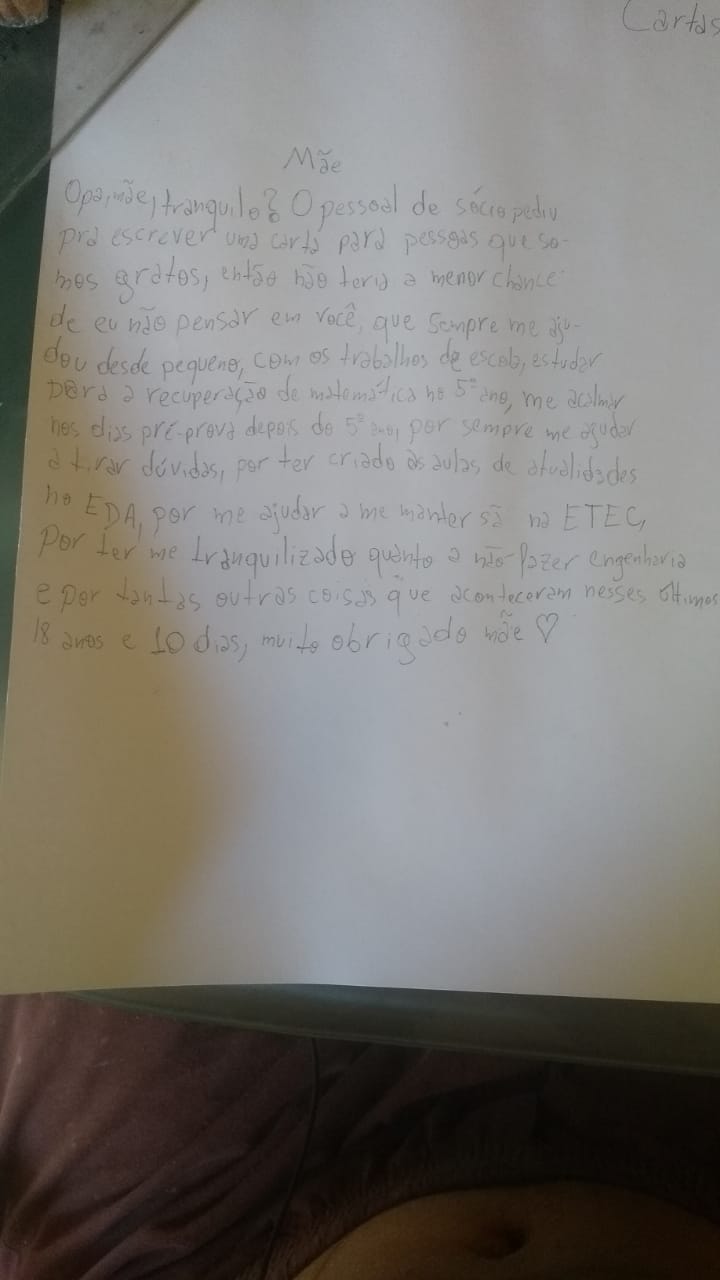 Cartas
Mãe
Opa, mãe, tranquilo? O pessoal de sócio pediu
pra escrever uma carta para pessoas que so-
mos gratos, então não teria a menor chance
de eu não pensar em você, que sempre me aju-
dou desde pequeno, com os trabalhos de escola, estudar
para a recuperação de matemática no 5º ano, me acalmar
nos dias pré-prova depois do 5º ano, por sempre me ajudar
a tirar dúvidas, por ter criado as aulas de atualidades
no EDA, por me ajudar a me manter sã na ETEC,
por ter me tranquilizado quanto a não fazer engenharia
e por tantas outras coisas que aconteceram nesses últimos
18 anos e 10 dias, muito obrigado mãe ♡